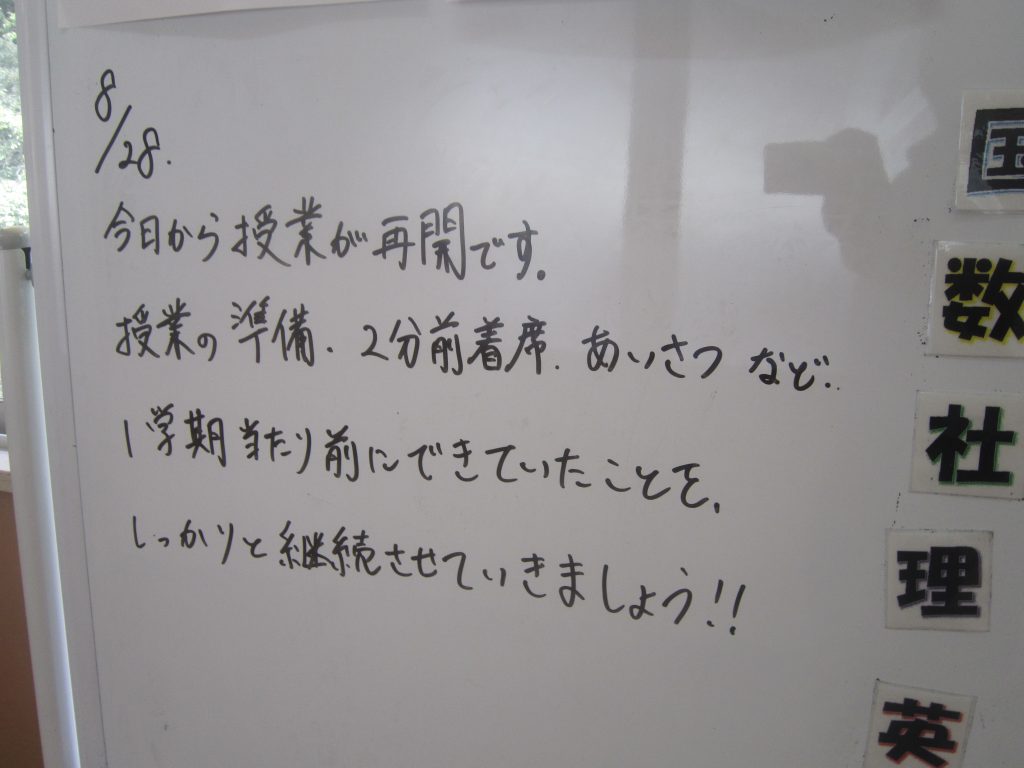 8/28.
今日から授業が再開です。
授業の準備、2分前着席、あいさつ など、
1学期当たり前にできていたことを、
しっかりと継続させていきましょう!!
国
数
社
理
英